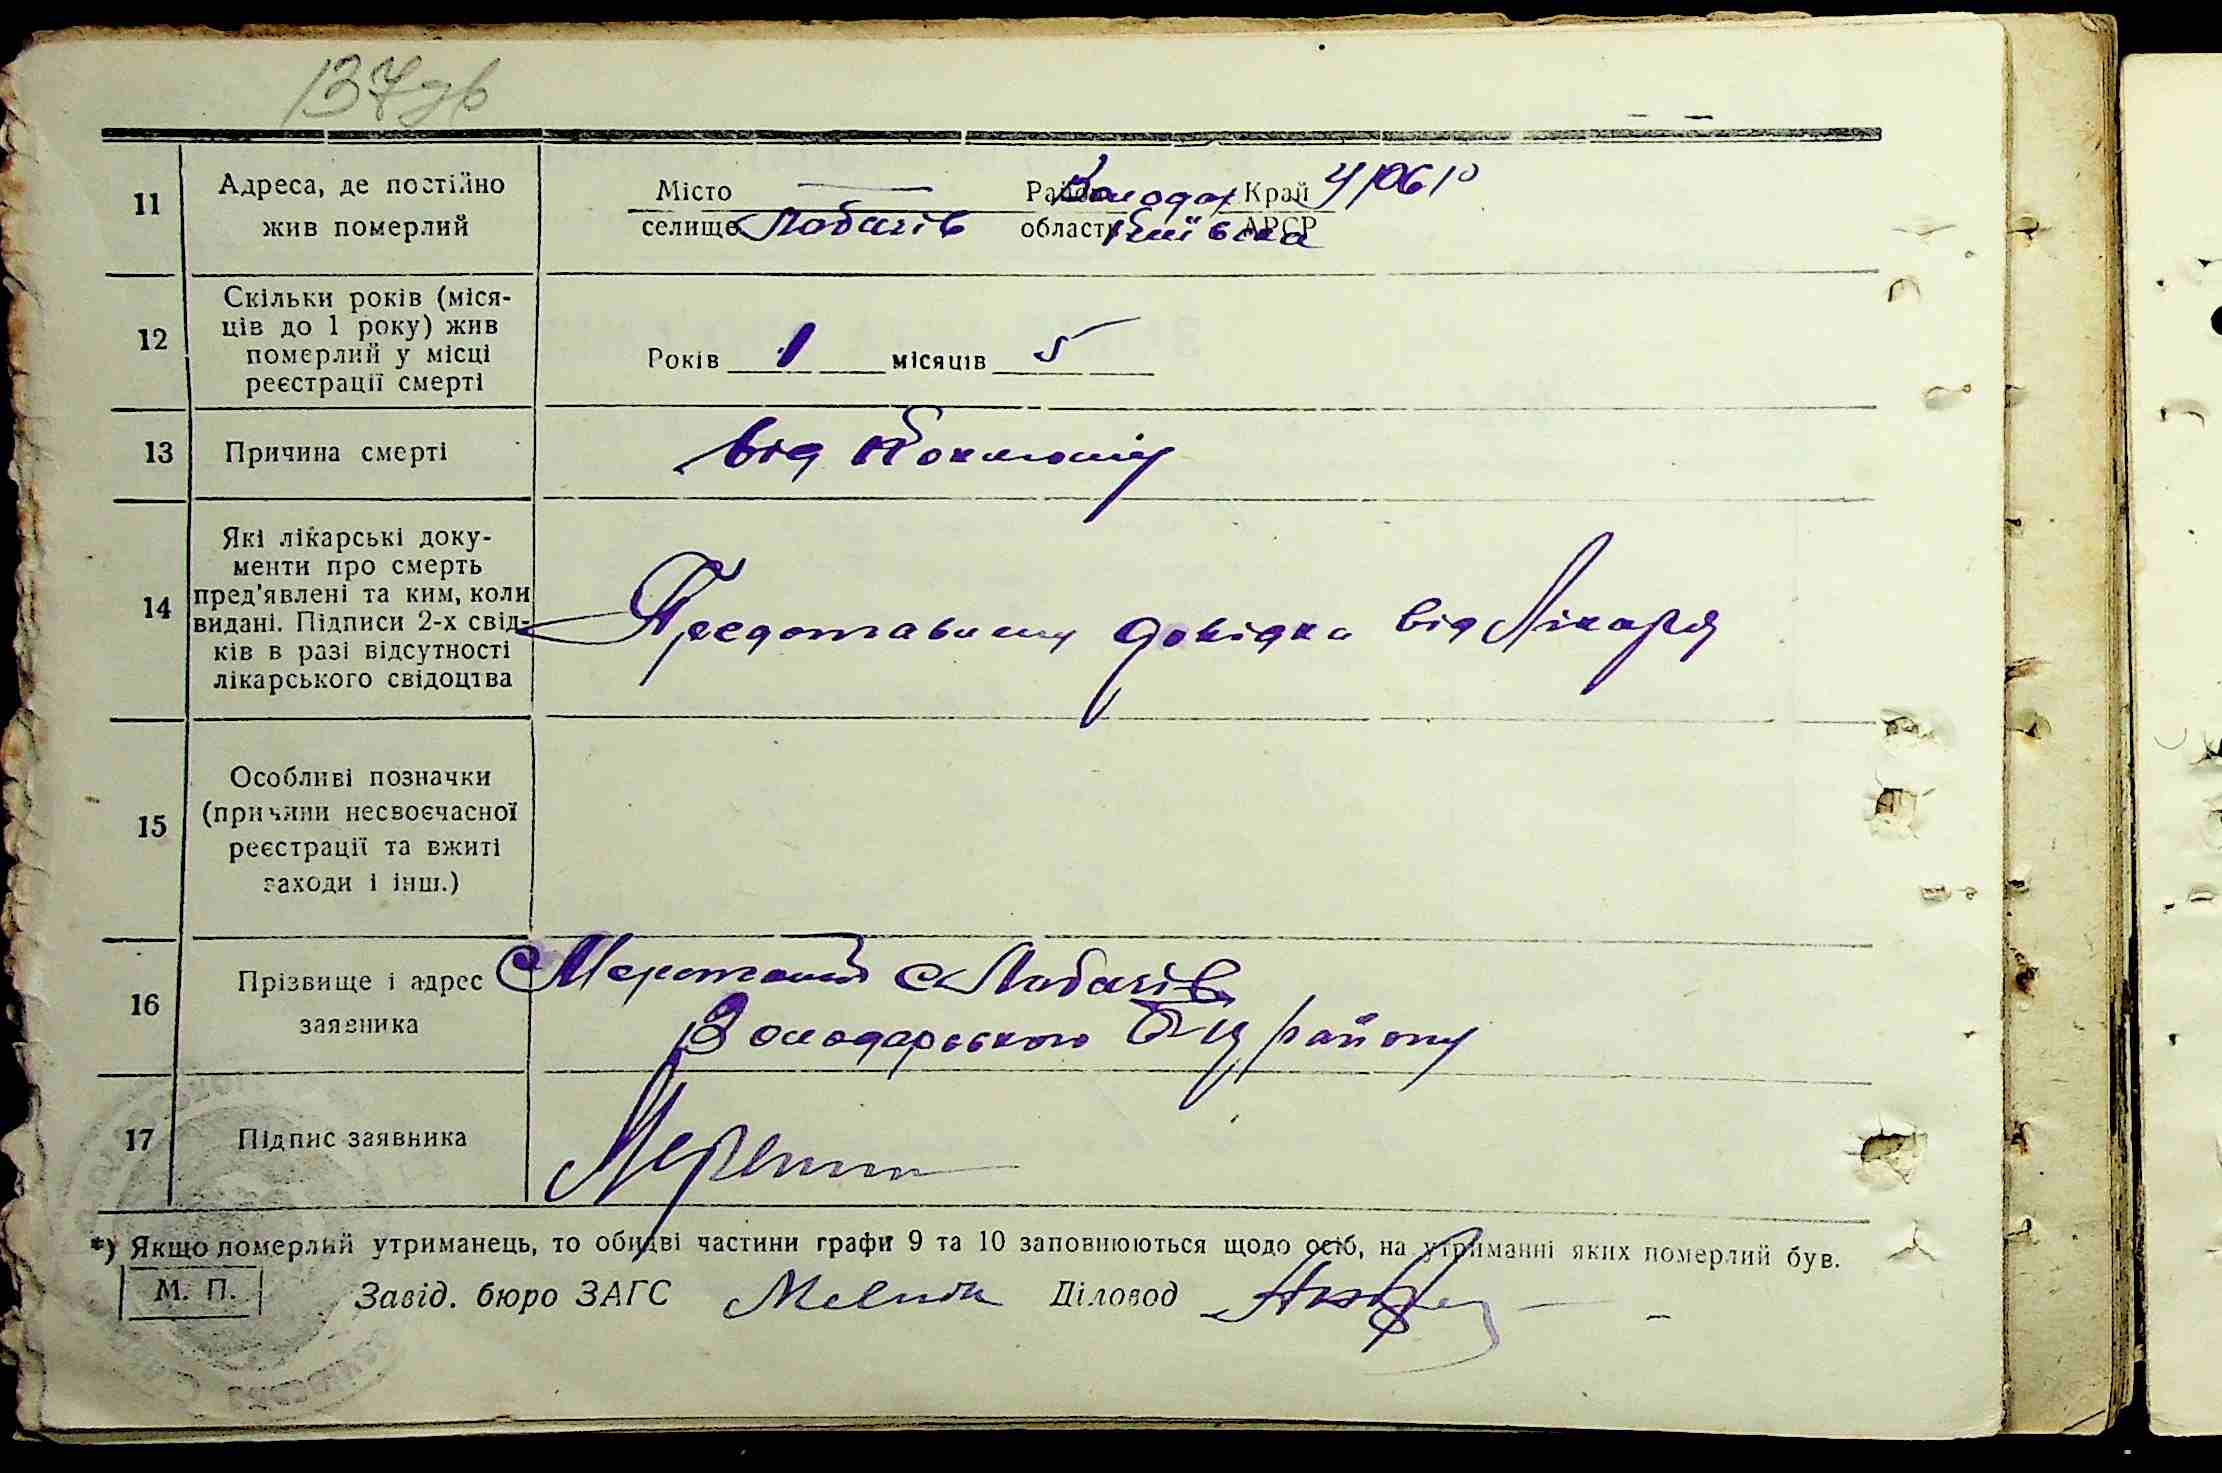 137
11 Адреса, де постійно
жив померлий
Місто — Район Володар Край УРСР
селище Лобачів область Київська АРСР
12 Скільки років (міся-
ців до 1 року) жив
померлий у місці
реєстрації смерті
Років 1 місяців 5
13 Причина смерті
від Коклюшу
14 Які лікарські доку-
менти про смерть
пред'явлені та ким, коли
видані. Підписи 2-х свід-
ків в разі відсутності
лікарського свідоцтва
довідка від Лікаря
15 Особливі позначки
(причини несвоєчасної
реєстрації та вжиті
заходи і інш.)
16 Прізвище і адрес
заявника
с Лобачів
Володарського району
17 Підпис заявника
*) Якщо померлий утриманець, то обидві частини графи 9 та 10 заповнюються щодо осіб, на утриманні яких померлий був.
М. П. Завід. бюро ЗАГС Діловод